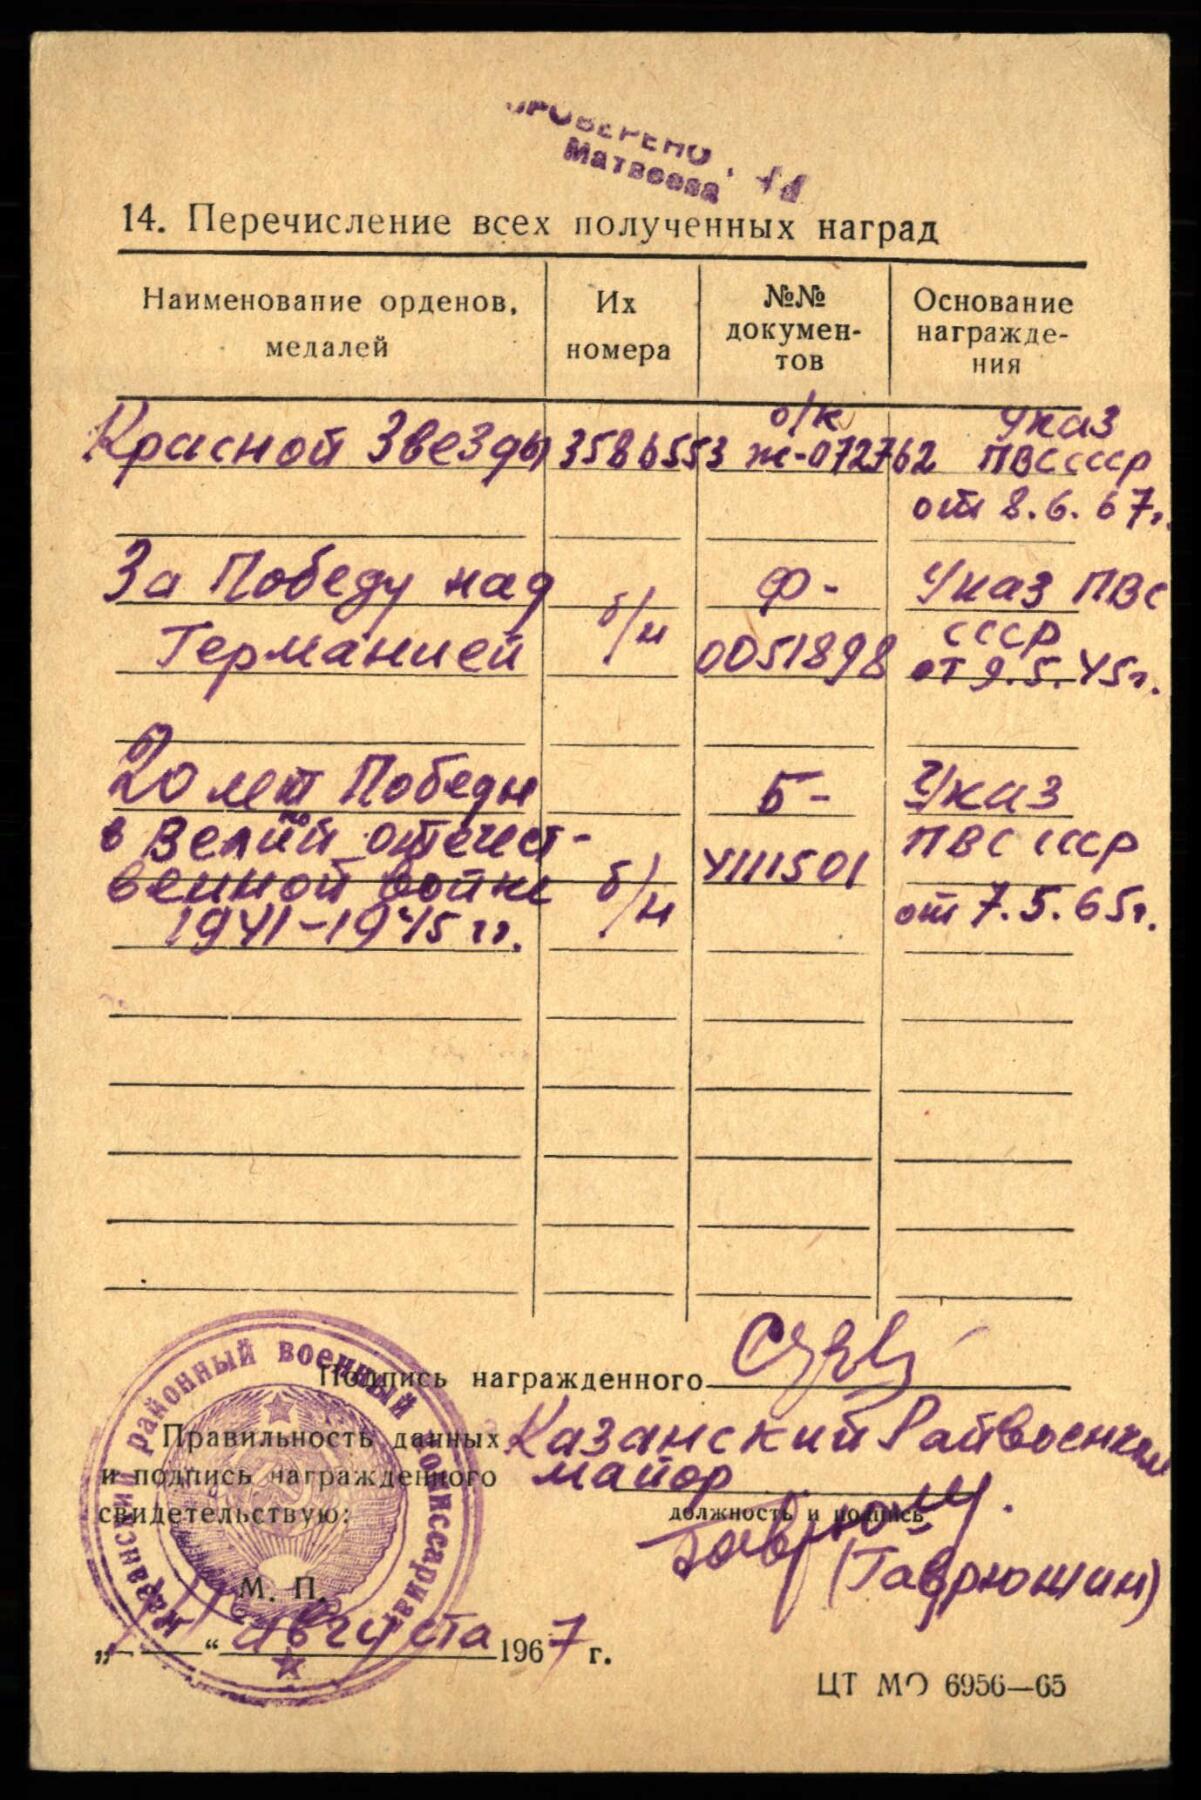 ПРОВЕРЕНО
Матвеева
14. Перечисление всех полученных наград
Наименование орденов, медалей
Их номера
№№ докумен-
тов
Основание
награжде-
ния
Красной Звезды 3586553 о/к ж-072762 Указ
ПВС СССР
от 8.6.67г.
За Победу над
Германией б/н Ф-
0051898 Указ ПВС
СССР
от 9.5.45г.
20 лет Победы
в Велик̶ой отечест-
венной войне
1941-1945 гг. б/н Б-
4111501 Указ
ПВС СССР
от 7.5.65г.
Подпись награжденного
Правильность данных
и подпись награжденного
свидетельствую:
Казанский Райвоенком
майор
должность и подпись
(Гаврюшин)
М. П.
Казанский районный военный комиссариат
„ “ августа 1967 г.
ЦТ МО 6956—65